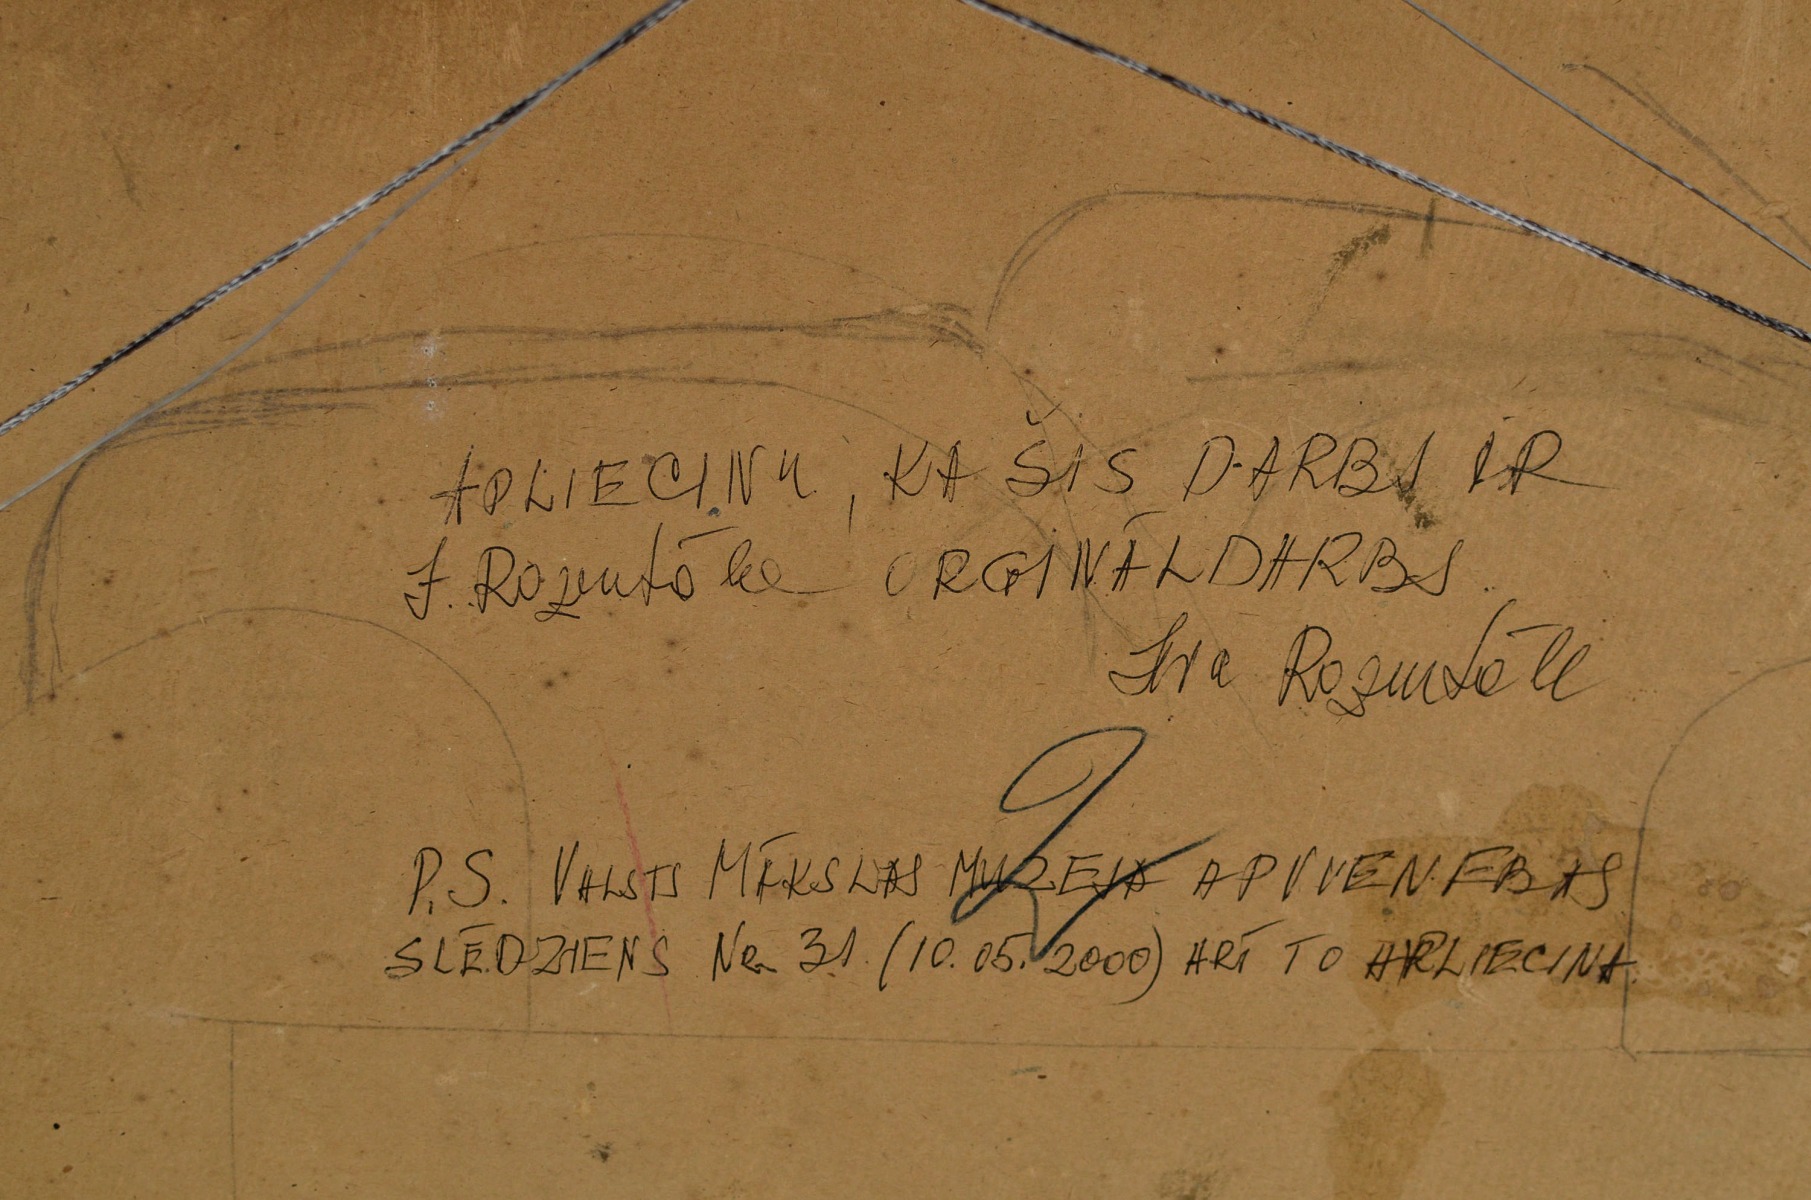 APLIECINU, KA ŠIS DARBS IR
J. Rozentāla ORGINĀLDARBS.
Iva Rozentāle
P.S. VALSTS MĀKSLAS MUZEJA APVIENĪBAS
SLĒDZIENS Nr. 31 (10.05.2000) ARĪ TO APLIECINA.